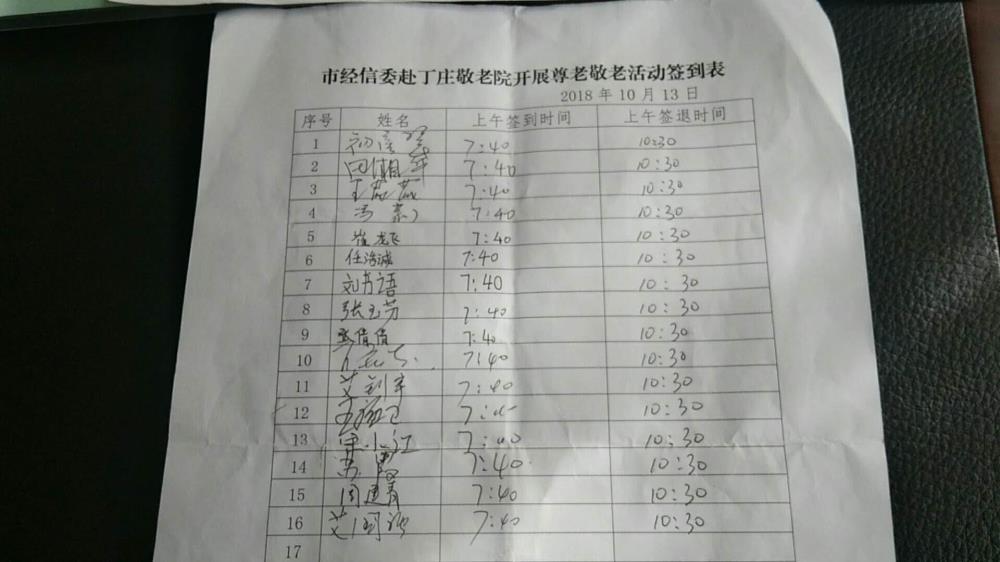 市经信委赴丁庄敬老院开展尊老敬老活动签到表
2018 年 10 月 13 日
序号 姓名 上午签到时间 上午签退时间
1 7:40 10:30
2 田湘军 7:40 10:30
3 王茂茂 7:40 10:30
4 7:40 10:30
5 崔龙飞 7:40 10:30
6 任浩诚 7:40 10:30
7 刘书语 7:40 10:30
8 张玉芳 7:40 10:30
9 倩倩 7:40 10:30
10 7:40 10:30
11 艾利军 7:40 10:30
12 10:30
13 小江 7:40 10:30
14 苏霞 7:40 10:30
15 周建青 7:40 10:30
16 艾国 7:40 10:30
17